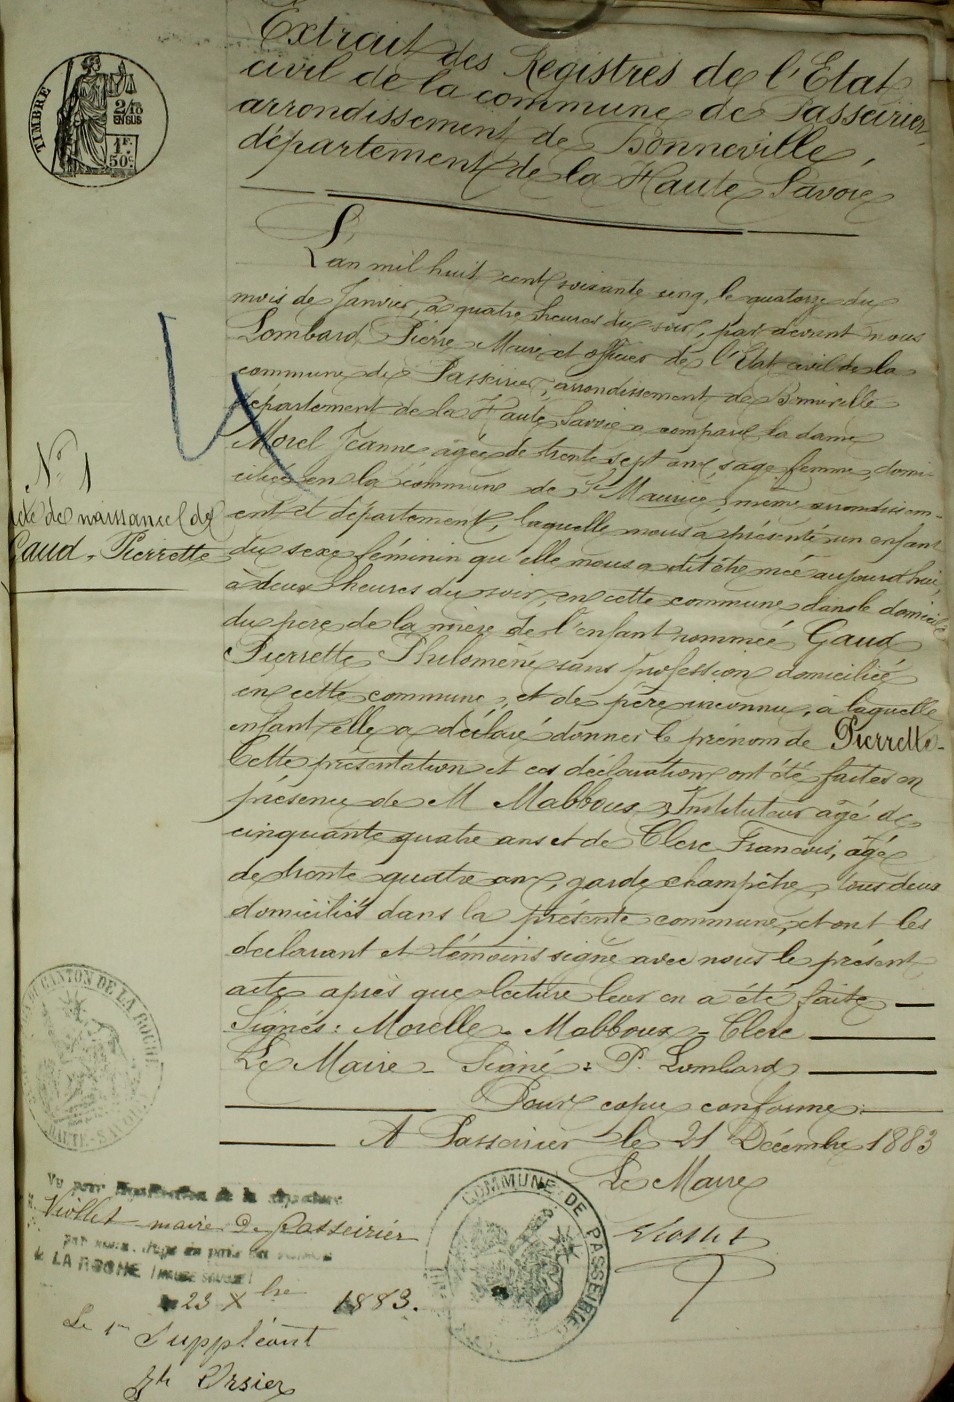 Extrait des Registres de l'Etat
civil de la commune de Passeirier,
arrondissement de Bonneville,
département de la Haute Savoie
TIMBRE
2/10
EN SUS
1F.
50c
L'an mil huit cent soixante cinq, le quatorze du
mois de Janvier, à quatre heures du soir, par devant nous
Lombard Pierre Maire et officier de l'Etat civil de la
commune de Passeirier, arrondissement de Bonneville
département de la Haute Savoie a comparu la dame
Morel Jeanne agée de trente sept ans, sage femme, domi-
ciliée en la commune de St Maurice, même arrondissem-
ent et département, laquelle nous a présenté un enfant
du sexe féminin qu'elle nous a dit être née aujourd'hui,
à deux heures du soir, en cette commune dans le domicile
du père de la mère de l'enfant nommée Gaud
Pierrette Philomène sans profession domiciliée
en cette commune, et de père inconnu, à laquelle
enfant elle a déclaré donner le prénom de Pierrette-
Cette présentation et ces déclarations ont été faites en
présence de M Mabboux, Instituteur âgé de
cinquante quatre ans et de Clerc Francois, âgé
de trente quatre ans, garde champêtre, tous deux
domiciliés dans la présente commune, et ont les
declarant et témoins signé avec nous le présent
acte après que lecture leur en a été faite
Signés: Morelle - Mabboux - Clerc
Le Maire - Signé: P. Lombard
Pour copie conforme:
A Passeirier le 21 Décembre 1883
Le Maire
N° 1
acte de naissance de
Gaud, Pierrette
CANTON DE LA ROCHE
HAUTE-SAVOIE
Vu pour légalisation de la signature
Viollet maire de Passeirier
par nous, Juge de paix du canton
de LA ROCHE (HAUTE SAVOIE)
le 23 Xbre 1883.
Le 1er Suppléant
Orsier
COMMUNE DE PASSEIRIER